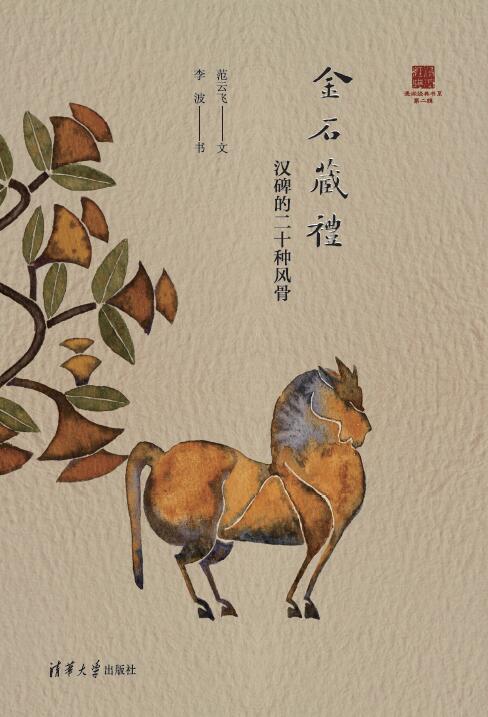 金石藏禮
汉碑的二十种风骨
范云飞——文
李波——书
漫阅经典书系
第二辑
清华大学出版社